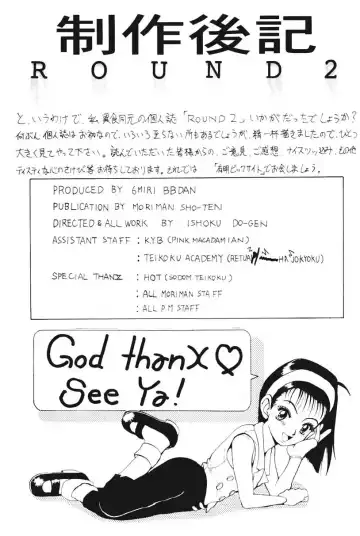 制作後記
ROUND2
と、いうわけで、私 異食同元の個人誌「ROUND2」いかがだったでしょうか?
何ぶん個人誌はお初なので、いろいろ至らない所もあるでしょうが、精一杯書きましたので、ひとつ
大きく見てやって下さい。読んでいただいた皆様からの、ご意見、ご感想、
お待ちしております。それでは「有明ビッグサイト」でお会いしましょう。
PRODUCED BY 6MIRI BBDAN
PUBLICATION BY MORIMAN SHO-TEN
DIRECTED & ALL WORK BY ISHOKU DO-GEN
ASSISTANT STAFF : KYB (PINK MACADAMIAN)
: TEIKOKU ACADEMY
SPECIAL THANX : HOT (SODOM TEIKOKU)
: ALL MORIMAN STAFF
: ALL P.M STAFF
God thanX♡
See Ya!